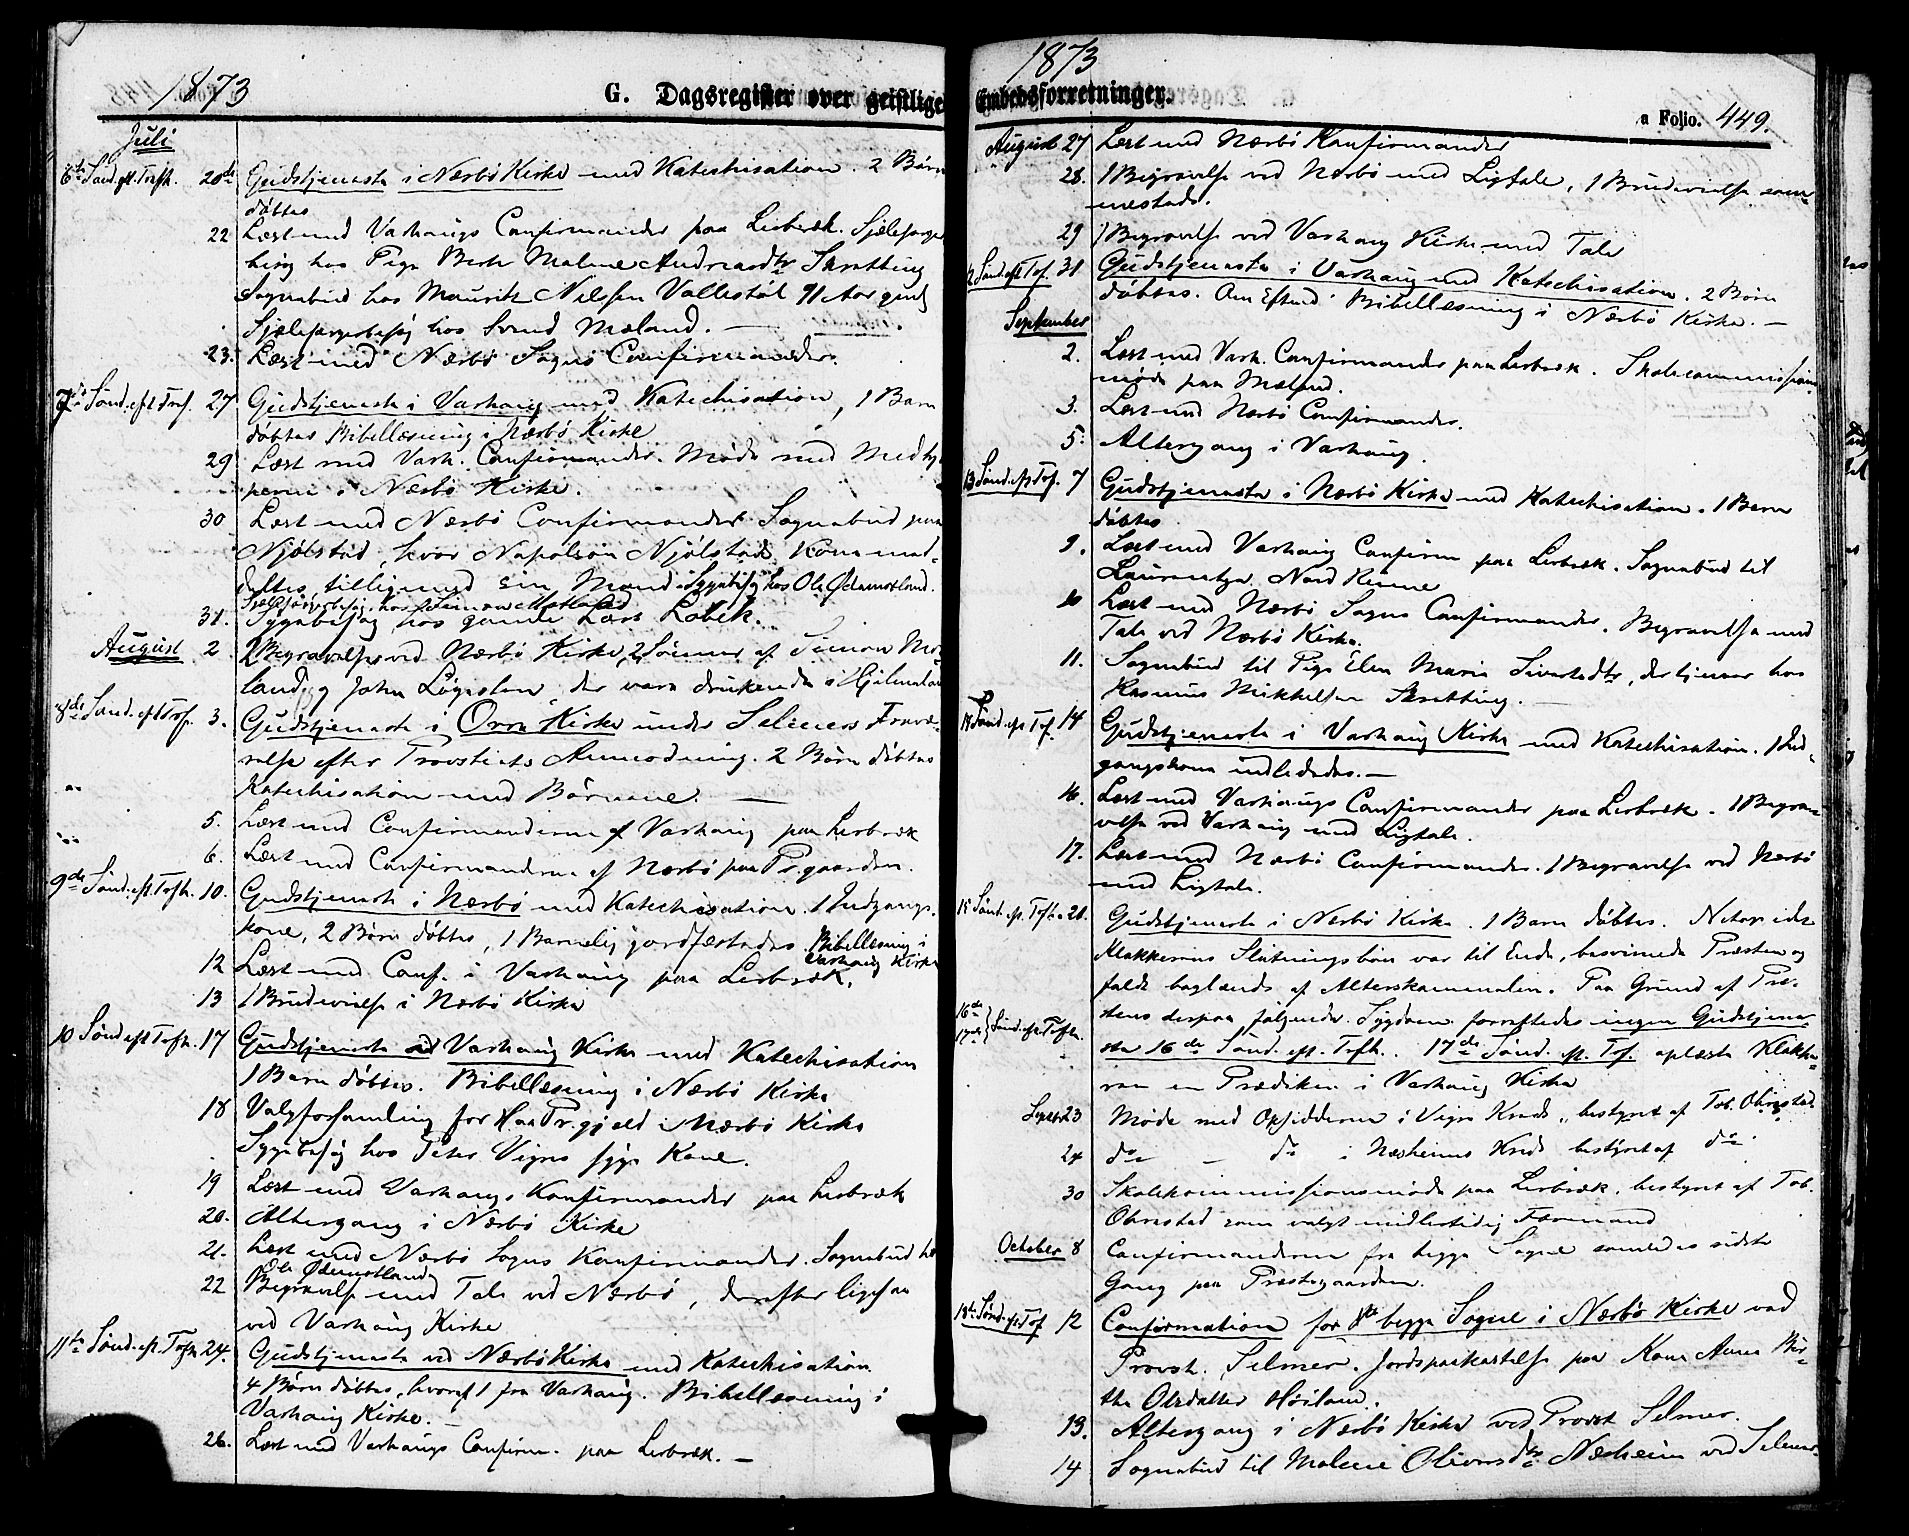 1873
G. Dagsregister over geistlige
Juli
6te Sönd. eft. Trefh. 20de Gudstjeneste i Nærbö Kirke med Katechisation. 2 Börn
döbtes
22 Læst med Varhaugs Confirmander paa Lerbræk. Sjælesorger
besög hos Pige Berte Malene Andreasdtr Skrætting
Sognebud hos Mauritz Nilsen Vollestöl 91 Aar gml
Sjælesorgerbesög hos Svend Mæland. —
23. Læst med Nærbö Sogns Confirmander.
7de Sönd. eft Tref. 27 Gudstjeneste i Varhaug med Katechisation, 1 Barn
döbtes Bibellæsning i Nærbö Kirke
29 Læst med Varh. Confirmander. Möde med Medhjæl
perne i Nærbö Kirke.
30 Læst med Nærbö Confirmander Sognebud paa
Njölstad, hvor Napoleon Njölstads Kone med-
deltes, tilligemed sin Mand. Sygebesög hos Ole Ödemotland.
Sjælesörgerbesög hos Simon Motland
31. Sygebesög hos gamle Lars Lobek.
August 2 2 Begravelser ved Nærbö Kirke, 2 Sönner af Simon Mot
land og John Lögeslen, der vare druknede i Hjelmeland
8de Sönd. eft Tref. 3. Gudstjeneste i Orre Kirke under Selmers Fravæ-
relse efter Provstiets Anmodning. 2 Börn döbtes
Katechisation med Börnene. —
5. Læst med Confirmanderne af Varhaug paa Lerbræk
6. Læst med Confirmanderne af Nærbö paa Pr.gaarden.
9de Sönd. eft. Trefh. 10. Gudstjeneste i Nærbö med Katechisation. 1 Indgangs-
kone, 2 Börn döbtes, 1 Barnelig jordfæstedes. Bibellæsning i
Varhaug Kirke
12 Læst med Conf. i Varhaug paa Lerbræk.
13 1 Brudevielse i Nærbö Kirke
10 Sönd eft Trefh. 17 Gudstjeneste ved Varhaug Kirke med Katechisation
1 Barn döbtes. Bibellæsning i Nærbö Kirke
18 Valgforsamling for Haa Pr.gjeld i Nærbö Kirke
Sygebesög hos Peter Vigres syge Kone.
19 Læst med Varhaugs Konfirmander paa Lerbræk
20. Altergang i Nærbö Kirke
21. Læst med Nærbö Sogns Konfirmander. Sognebud hos
Ole Ödemotland
22 Begravelse med Tale ved Nærbö, derefter ligesaa
ved Varhaug Kirke
11te Sönd. eft. Trefh 24. Gudstjeneste ved Nærbö Kirke med Katechisation
4 Börn döbtes, hvoraf 1 fra Varhaug. Bibellæsning i
Varhaug Kirke. —
26. Læst med Varhaugs Confirm. paa Lerbræk. —
1873
Embedsforretninger.
a Folio. 449.
August 27 Læst med Nærbö Konfirmander
28. 1 Begravelse ved Nærbö med Ligtale, 1 Brudevielse sam-
mesteds.
29 1 Begravelse ved Varhaug Kirke med Tale
12 Sönd eft Tref. 31 Gudstjeneste i Varhaug med Katechisation. 2 Börn
döbtes. Om Efterm. Bibellæsning i Nærbö Kirke. —
September
2. Læst med Varh. Confirmander paa Lerbræk. Skolecommissions
möde paa Mæland.
3. Læst med Nærbö Confirmander.
5. Altergang i Varhaug.
13 Sönd. eft Tref. 7 Gudstjeneste i Nærbö Kirke med Katechisation. 1 Barn
döbtes
9. Læst med Varhaug Confirm paa Lerbræk. Sognebud til
Laurentze Nord Reime
10 Læst med Nærbö Sogns Confirmander. Begravelse med
Tale ved Nærbö Kirke.
11. Sognebud til Pige Elen Marie Sivertsdtr, der tjener hos
Rasmus Mikkelsen Skretting. —
14 Sönd. eft Tref. 14 Gudstjeneste i Varhaug Kirke med Katechisation. 1 Ind-
gangskone indlededes. —
16. Læst med Varhaugs Confirmander paa Lerbræk. 1 Begra-
velse ved Varhaug med Ligtale.
17. Læst med Nærbö Confirmander. 1 Begravelse ved Nærbö
med Ligtale.
15 Sönd. eft. Trefh. 21. Gudstjeneste i Nærbö Kirke. 1 Barn döbtes. Netop idet
Klokkerens Slutningsbön var til Ende, besvimede Præsten og
faldt baglænds af Alterskammelen. Paa Grund af Præ-
16de
17de } Sönd. eft. Trefh. stens derpaa fölgende Sygdom forrettedes ingen Gudstjene-
ste 16de Sönd. eft. Trefh. 17de Sönd. eft. Tref. oplæste Klokke-
ren en Prædiken i Varhaug Kirke
Septbr 23 Möde med Opsidderne i Vigre Kreds, bestyret af Tob. Obrestad.
24 do — do i Næsheims Kreds bestyret af do
30 Skolekommissionsmöde paa Lerbræk, bestyret af Tob.
Obrestad som valgt midlertidig Formand
October 8 Confirmanderne fra begge Sogne samledes sidste
Gang paa Præstegaarden.
18de Sönd. eft Tref 12 Confirmation for begge Sogne i Nærbö Kirke ved
Provst Selmer. Jordspaakastelse paa Kone Anne Bir-
the Olsdatter Höiland.
13. Altergang i Nærbö Kirke ved Provst Selmer.
14 Sognebud til Malene Oliversdtr Næsheim ved Selmer